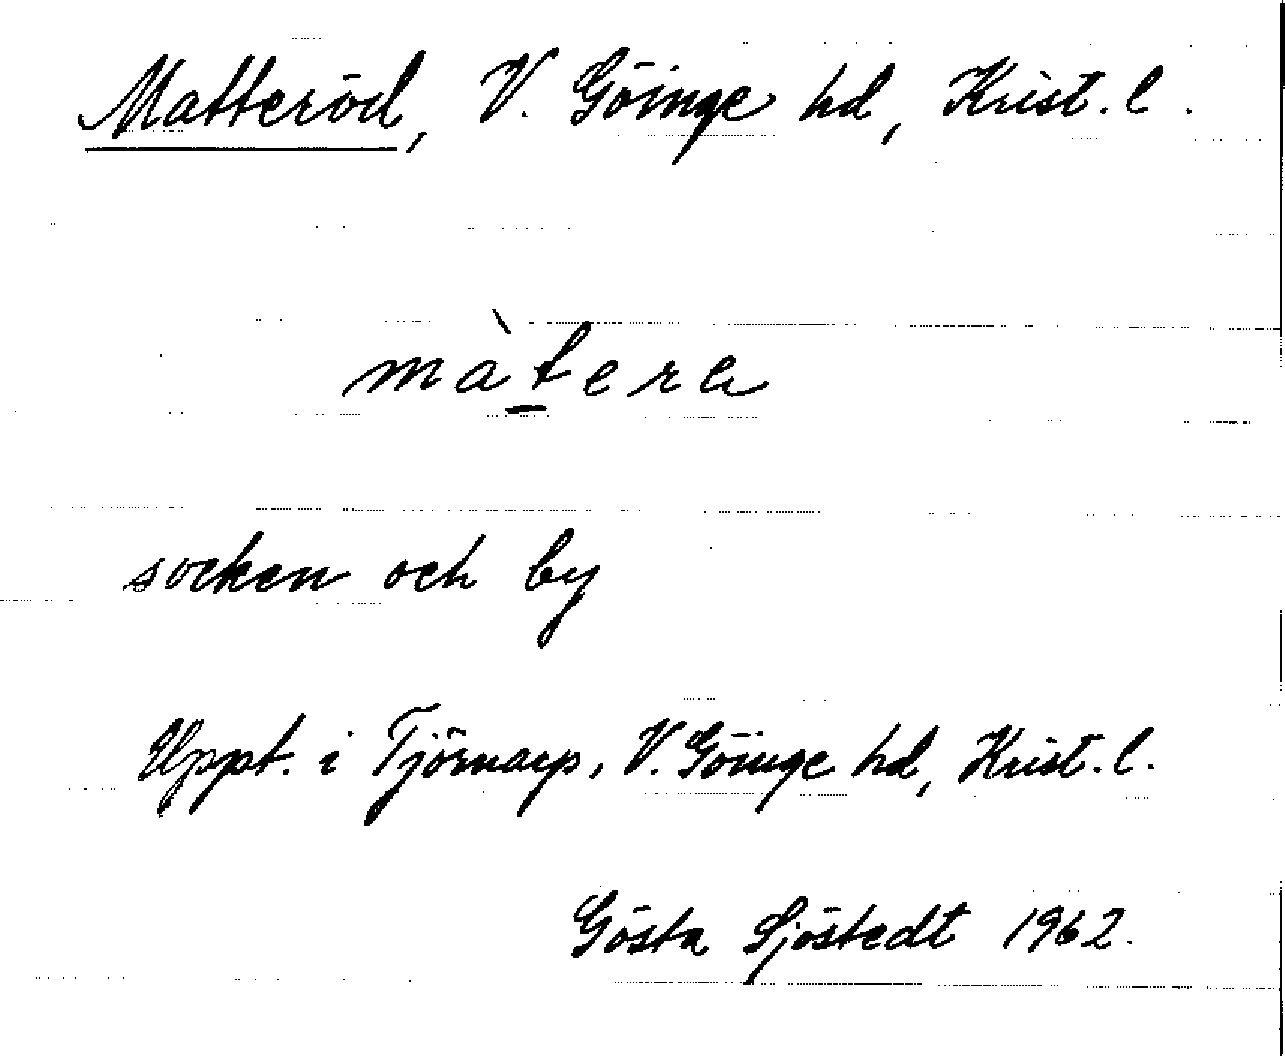 Matteröd, V. Göinge hd, Krist. l.
màṯera
socken och by
Uppt. i Tjörnarp, V. Göinge hd, Krist. l.
Gösta Sjöstedt 1962.